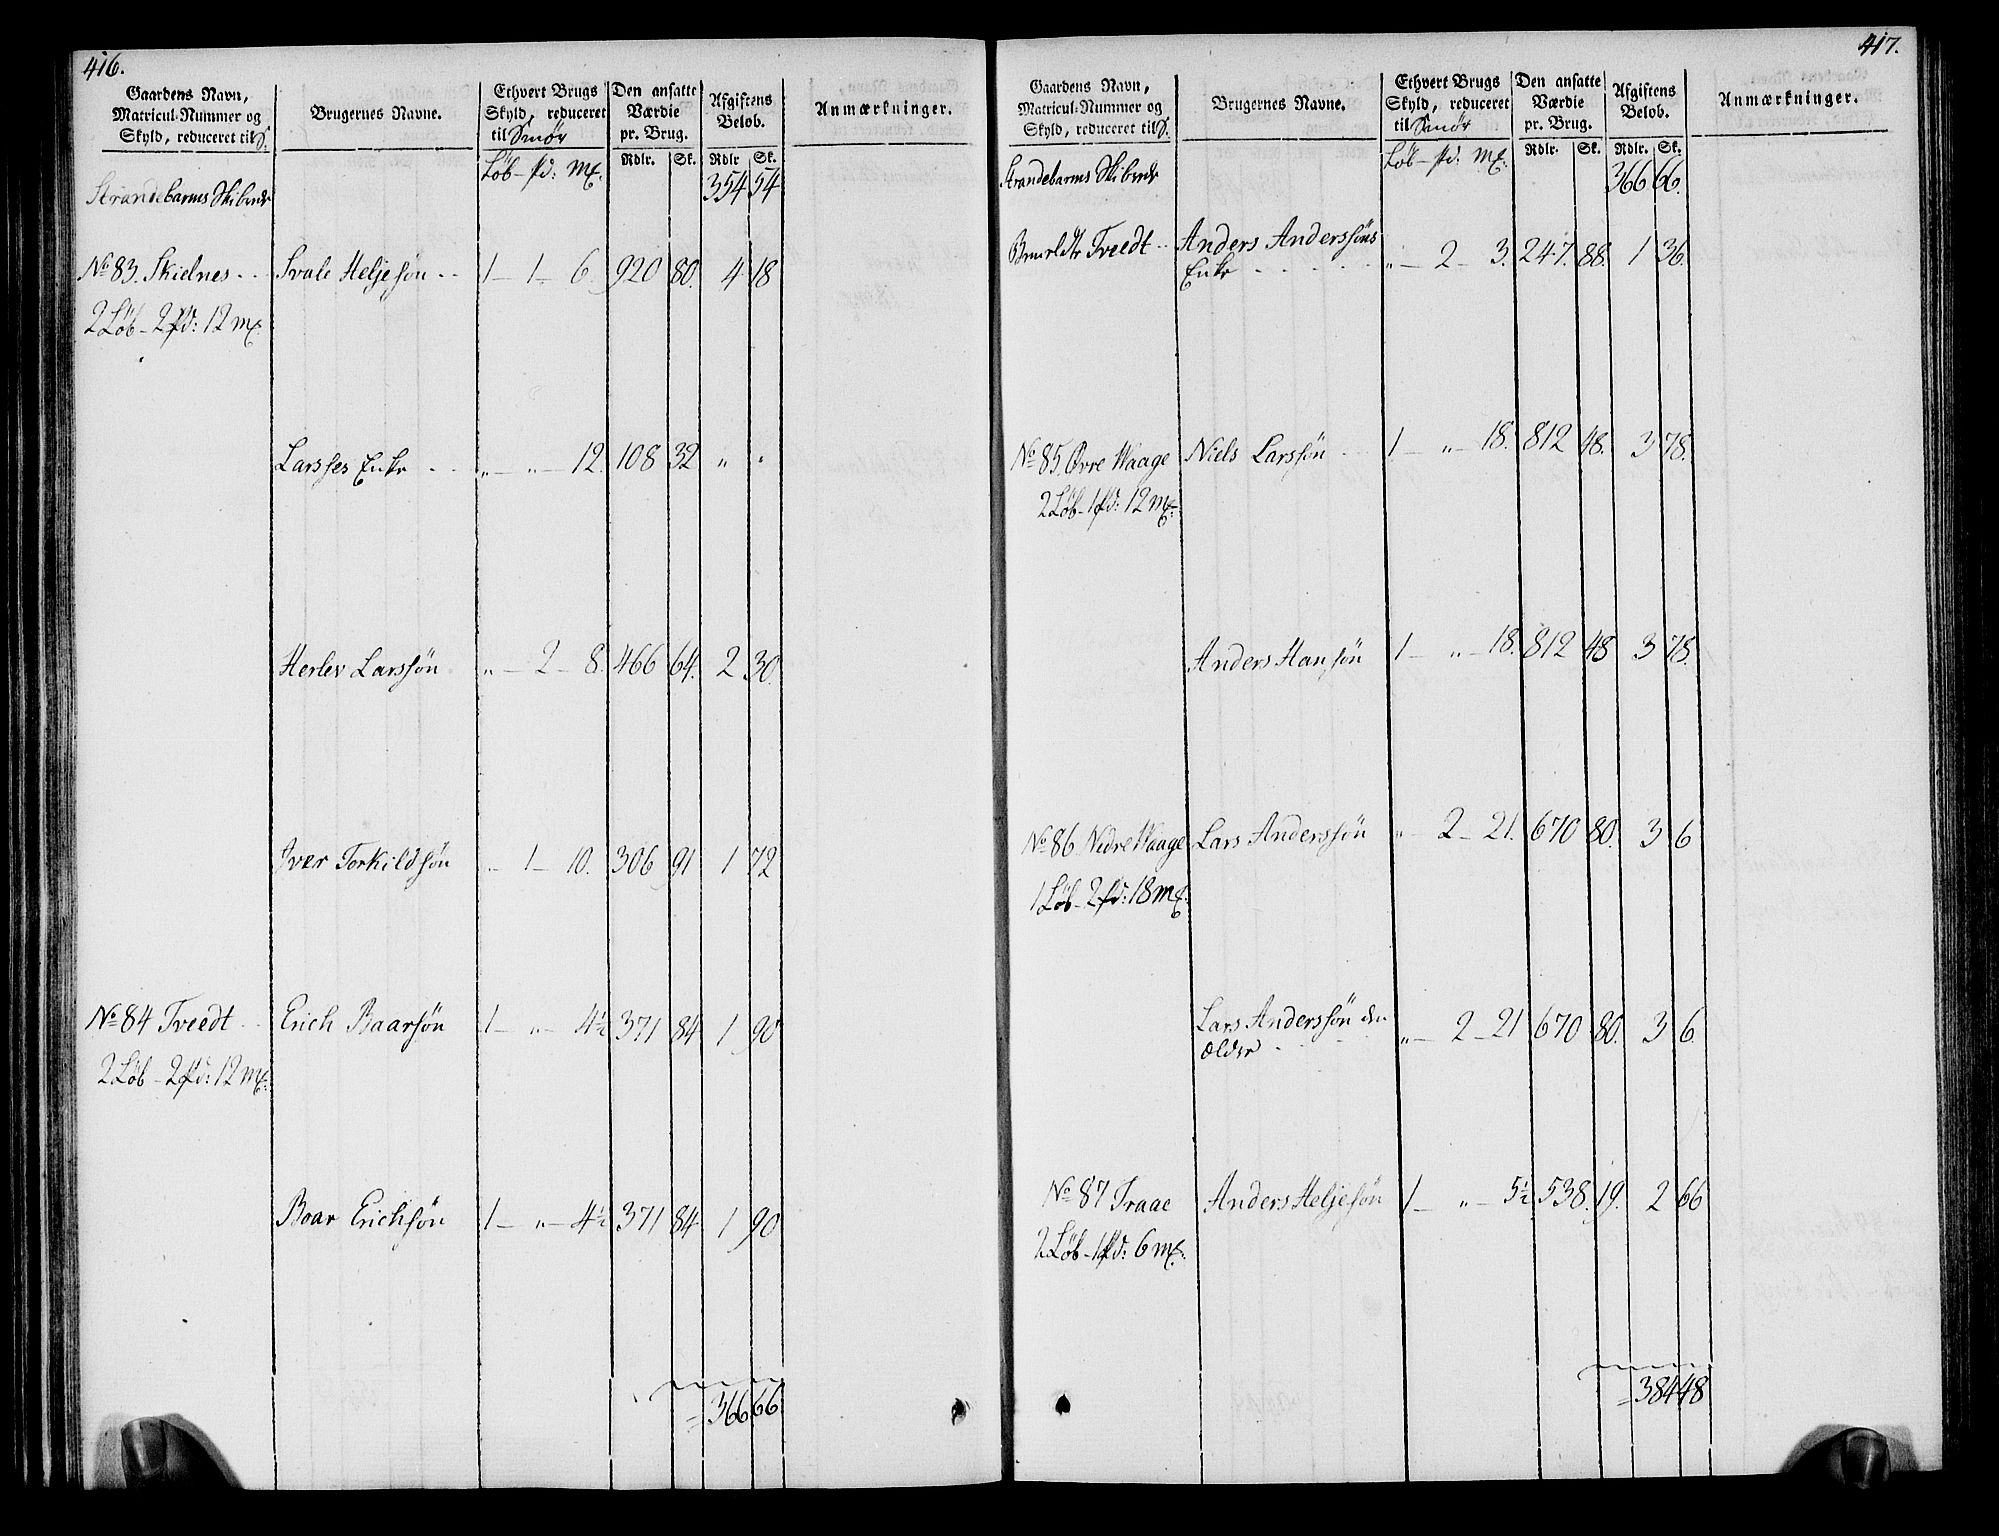 416.
Gaardens Navn, Matricul-Nummer og Skyld, reduceret til S.
Brugernes Navne.
Ethvert Brugs Skyld, reduceret til Smør
Den ansatte Værdie pr. Brug.
Afgiftens Beløb.
Anmærkninger.
Løb - pd: mk. Rdlr. Sk. Rdlr Sk.
Strandebarms Skibrede 354 54
No 83. Skielnes Svale Heljesøn 1 - 1 - 6. 920 80. 4 18
2 Løb - 2 pd: 12 mk.
Larsses Enke „ - „ - 12. 108 32 „ „
Herlev Larssøn „ - 2 - 8. 466 64. 2 30.
Iver Torkildsøn „ - 1 - 10. 306 91 1 72
No 84 Tveedt Erich Baarsøn 1 - „ - 4½ 371 84 1 90
2 Løb - 2 pd: 12 mk.
Boar Erichsøn 1 - „ - 4½ 371 84 1 90
= 366 66
417.
Gaardens Navn, Matricul-Nummer og Skyld, reduceret til S.
Brugernes Navne.
Ethvert Brugs Skyld, reduceret til Smør
Den ansatte Værdie pr. Brug.
Afgiftens Beløb.
Anmærkninger.
Løb - pd: mk. Rdlr. Sk. Rdlr. Sk.
Strandebarms Skibrede 366 66.
Tveedt Anders Anderssøns
Enke „ - 2 - 3. 247. 88. 1 36.
No 85 Øvre Waage Niels Larssøn 1 - „ - 18. 812 48. 3 78.
2 Løb - 1 pd: 12 mk.
Anders Hansøn 1 - „ - 18. 812 48 3 78.
No 86 Nedre Waage Lars Anderssøn „ - 2 - 21. 670 80. 3 6
1 Løb - 2 pd: 18 mk.
Lars Anderssøn den
Ælder „ - 2 - 21 670 80. 3 6.
No 87 Traae Anders Heljesøn 1 - „ - 5½ 538. 19. 2 66
2 Løb - 1 pd: 6 mk.
= 384 48